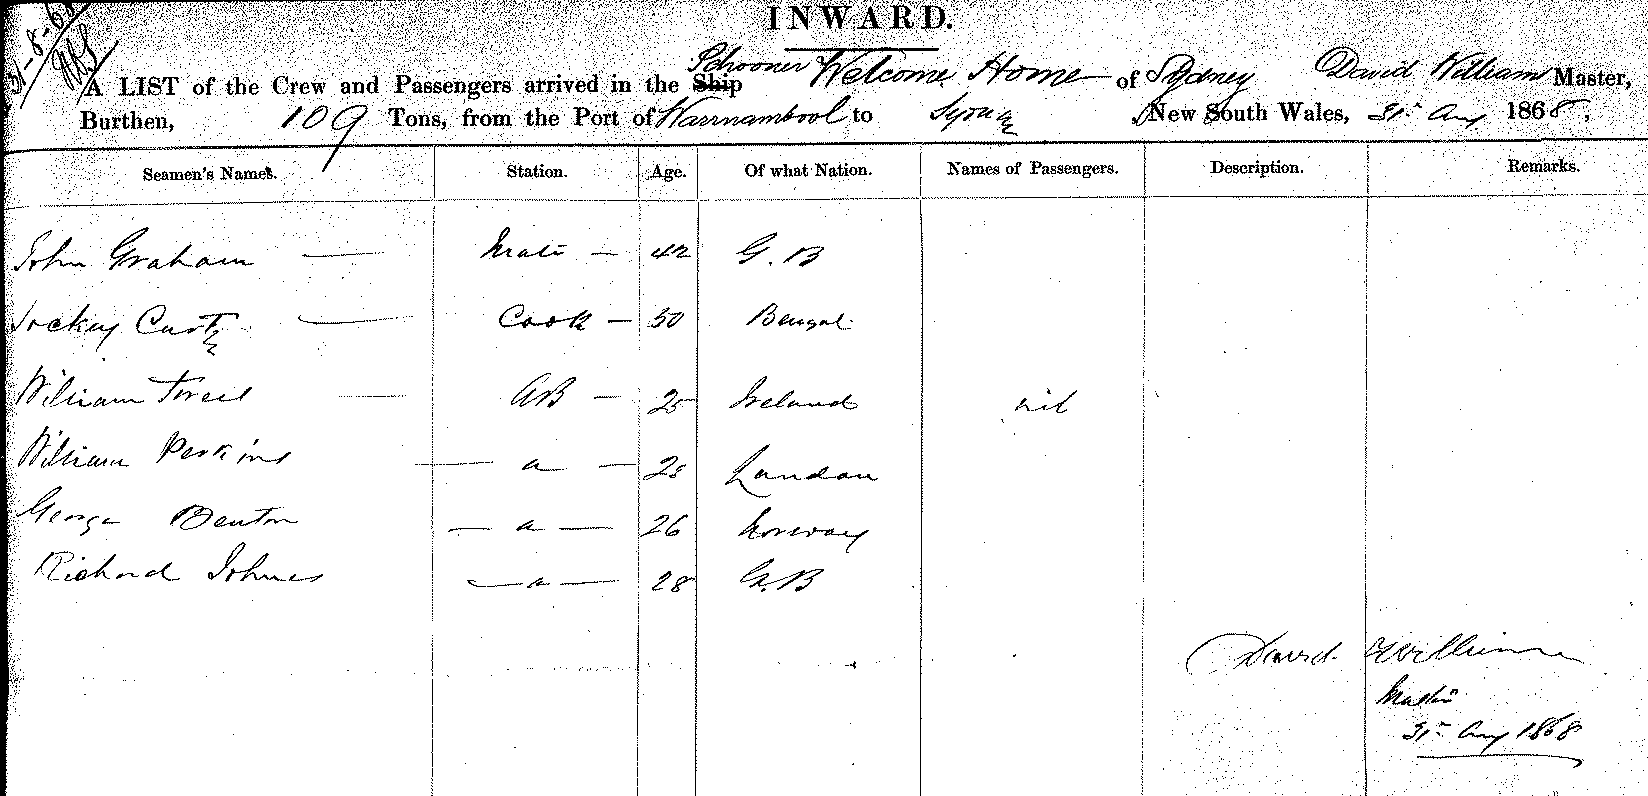 31-8-68
INWARD.
A LIST of the Crew and Passengers arrived in the Ship Schooner Welcome Home of Sydney David William Master,
Burthen, 109 Tons, from the Port of Warrnambool to Sydney New South Wales, 31st Aug 1868.
Seamen's Names. Station. Age. Of what Nation. Names of Passengers. Description. Remarks.
John Graham — Mate — 42 G. B
Cook — 50 Bengal
William — AB — 25 Ireland nil
William Perkins — a — 28 London
George Benton — a — 26 Norway
Richard Johnes — a — 28 G. B
David William
Master
31st Aug 1868